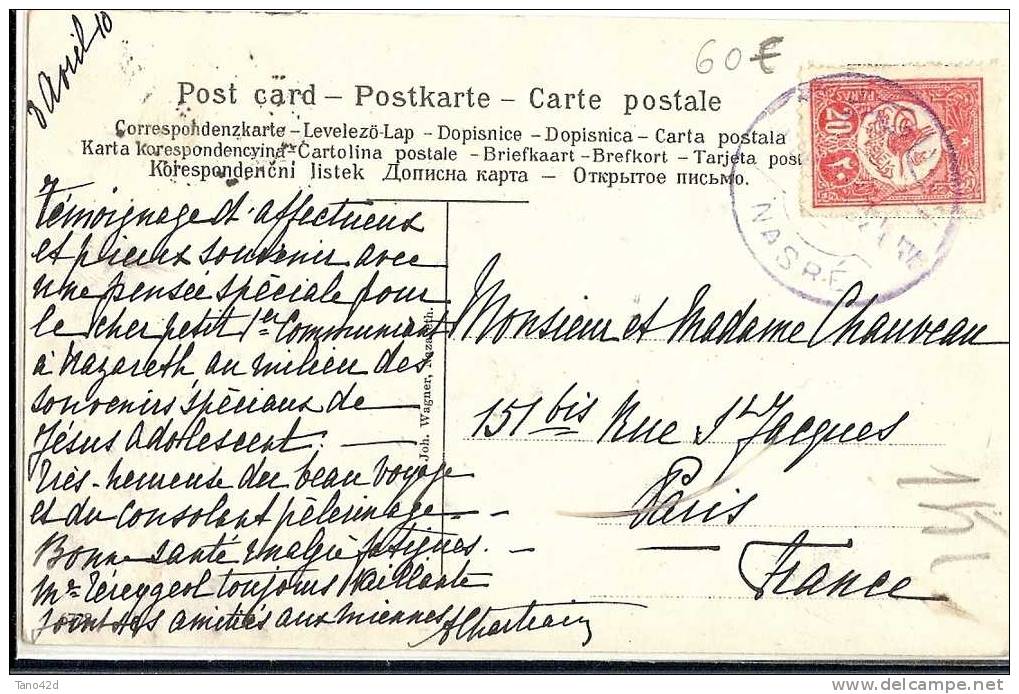 3 Avril 10
60€
Post card – Postkarte – Carte postale
Correspondenzkarte – Levelezö-Lap – Dopisnice – Dopisnica – Carta postala
Karta korespondencyina – Cartolina postale – Briefkaart – Brefkort – Tarjeta post
Korespondenčni listek Дописна карта — Открытое письмо.
20
PARAS
NASRÉ
Témoignage d'affectueux
et pieux souvenir avec
une pensée spéciale pour
le cher petit 1er Communiant
à Nazareth au milieu des
souvenirs spéciaux de
Jésus adolescent. —
Très heureuse du beau voyage
et du consolant pèlerinage —
Bonne santé malgré fatigues. —
toujours vaillante
joint ses amitiés aux miennes
Joh. Wagner, Nazareth.
Monsieur et Madame Chauveau
151 bis Rue St Jacques
Paris
France
Tano42d
delcampe.net